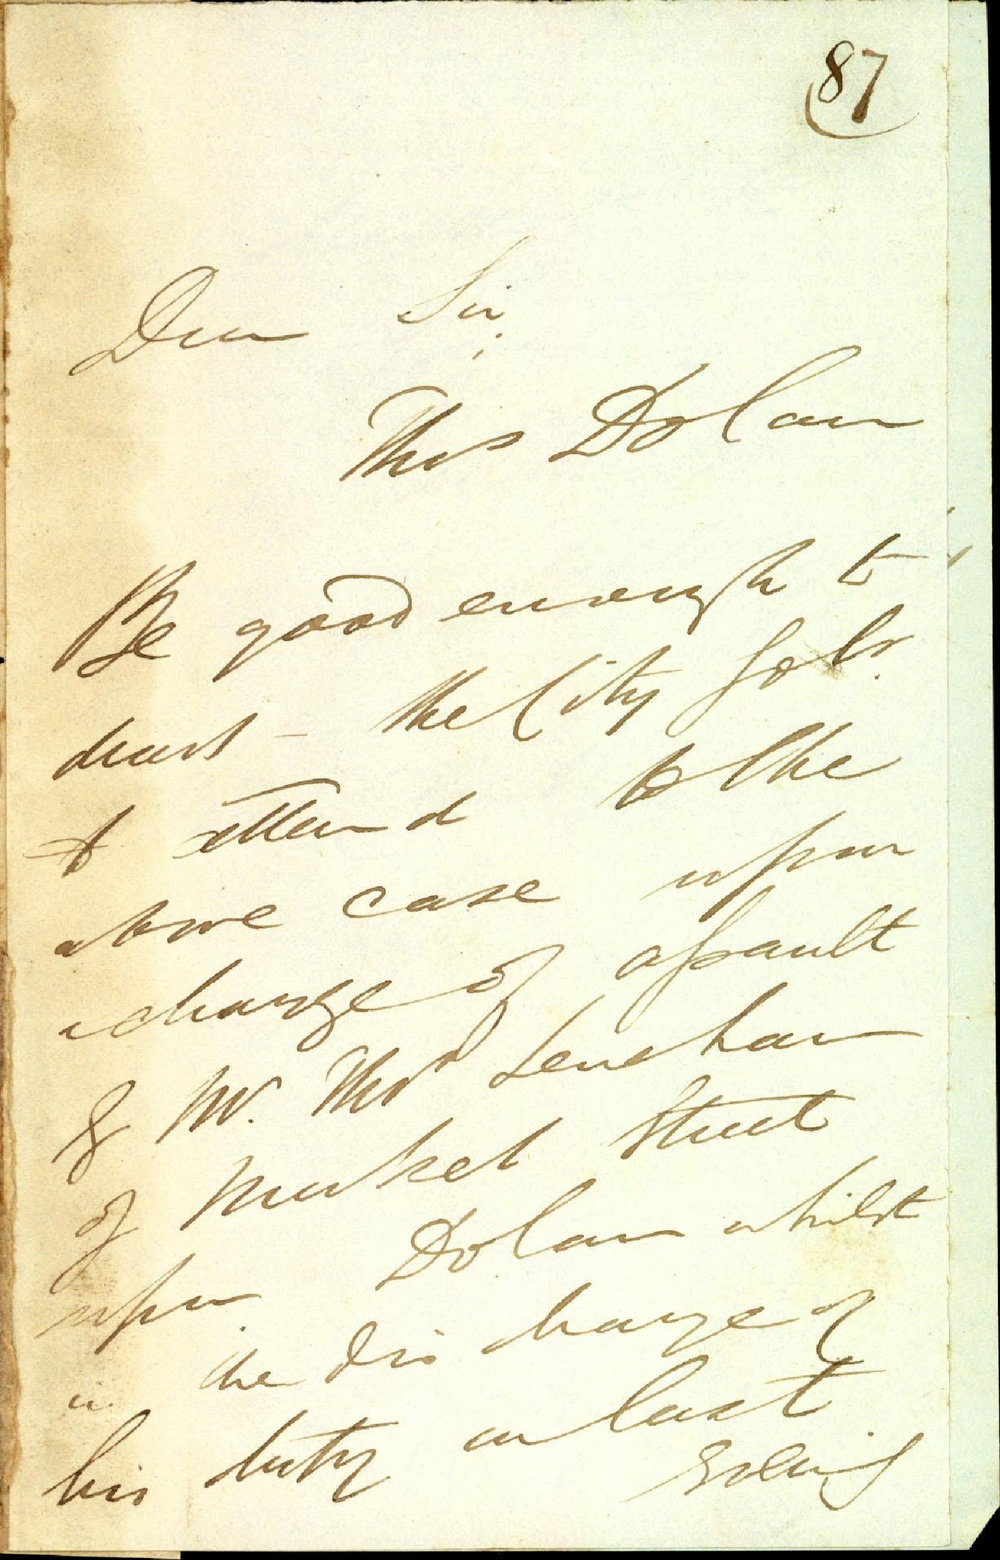 87
Dear Sir,
Thos Dolan
Be good enough to
direct - the City Solr.
to attend to the
above case upon
a charge of assault
by Mr. Thos Lenehan
of Market Street
upon Dolan whilst
in the discharge of
his duty on last
Evening